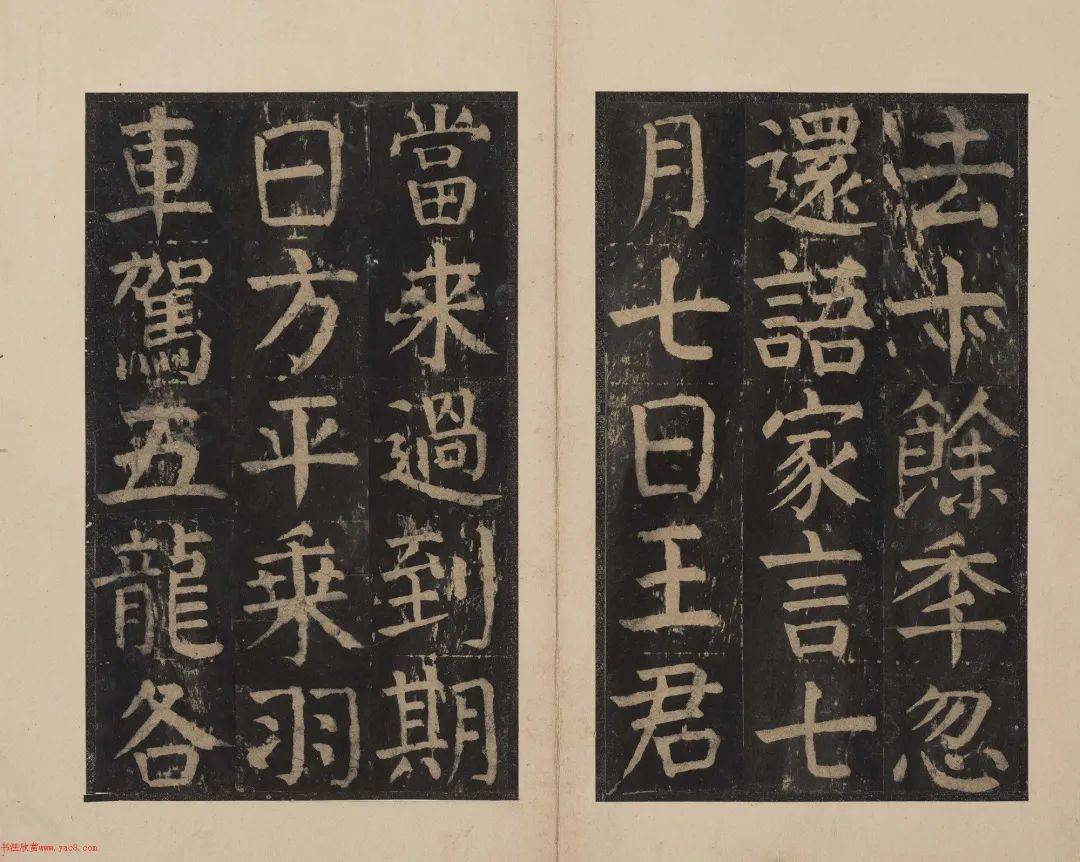 去十餘秊忽
還語家言七
月七日王君
當来過到期
日方平乗羽
車駕五龍各
书法欣赏www.yac8.com